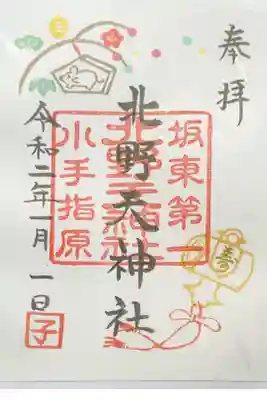 奉拝
坂東第一
北野天神社
小手指原
令和二年一月一日
子
寿